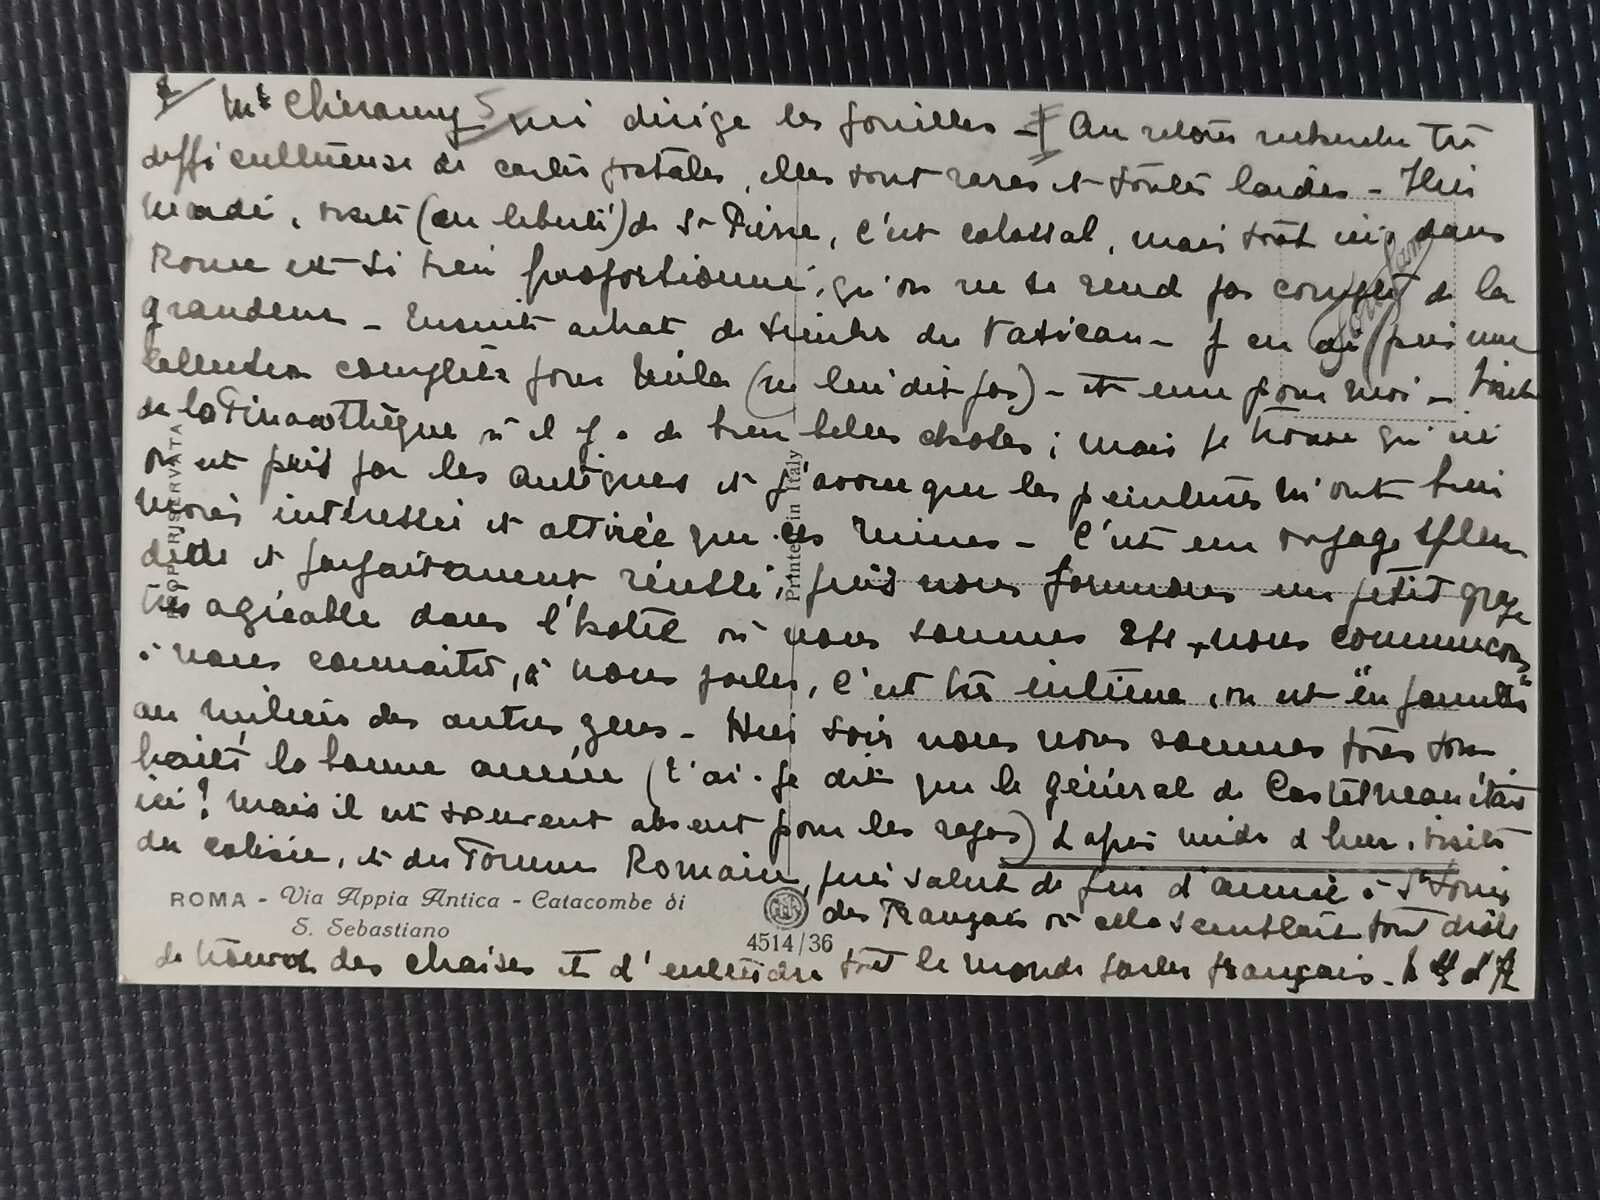 Mr Chéramy qui dirige les fouilles - Au retour recherche très
difficultueuse de cartes postales, elles sont rares et toutes laides -
visite (en liberté) de St Pierre, c'est colossal, mais tout ici, dans
Rome est si bien proportionné, qu'on ne se rend pas compte de la
grandeur - Ensuite achat de timbres du Vatican - J'en ai pris une
complète pour (ne lui dit pas) - et une pour moi - Visite
de la Pinacothèque où il y a de bien belles choses ; mais je trouve qu'ici
on est pris par les antiques et j'avoue que les peintures m'ont bien
moins intéressée et attirée que ces ruines - C'est un voyage splen
dide et parfaitement réussi, puis nous formons un petit groupe
très agréable dans l'hotel où nous sommes nous commençons
à nous connaitre, à nous parler, c'est très intime, on est "en famille"
au milieu des autres gens - Hier soir nous nous sommes tous sou
haité la bonne année (t'ai-je dit que le général de Castelnau était
ici ! mais il est souvent absent pour les repas) L'après midi d'hier, visite
du colisée, et du Forum Romain, puis salut de fin d'année à St Louis
des Français où cela semblait tout drôle
de trouver des chaises et d'entendre tout le monde parler français -
ROMA - Via Appia Antica - Catacombe di
S. Sebastiano
4514/36
PROP. RISERVATA
Printed in Italy